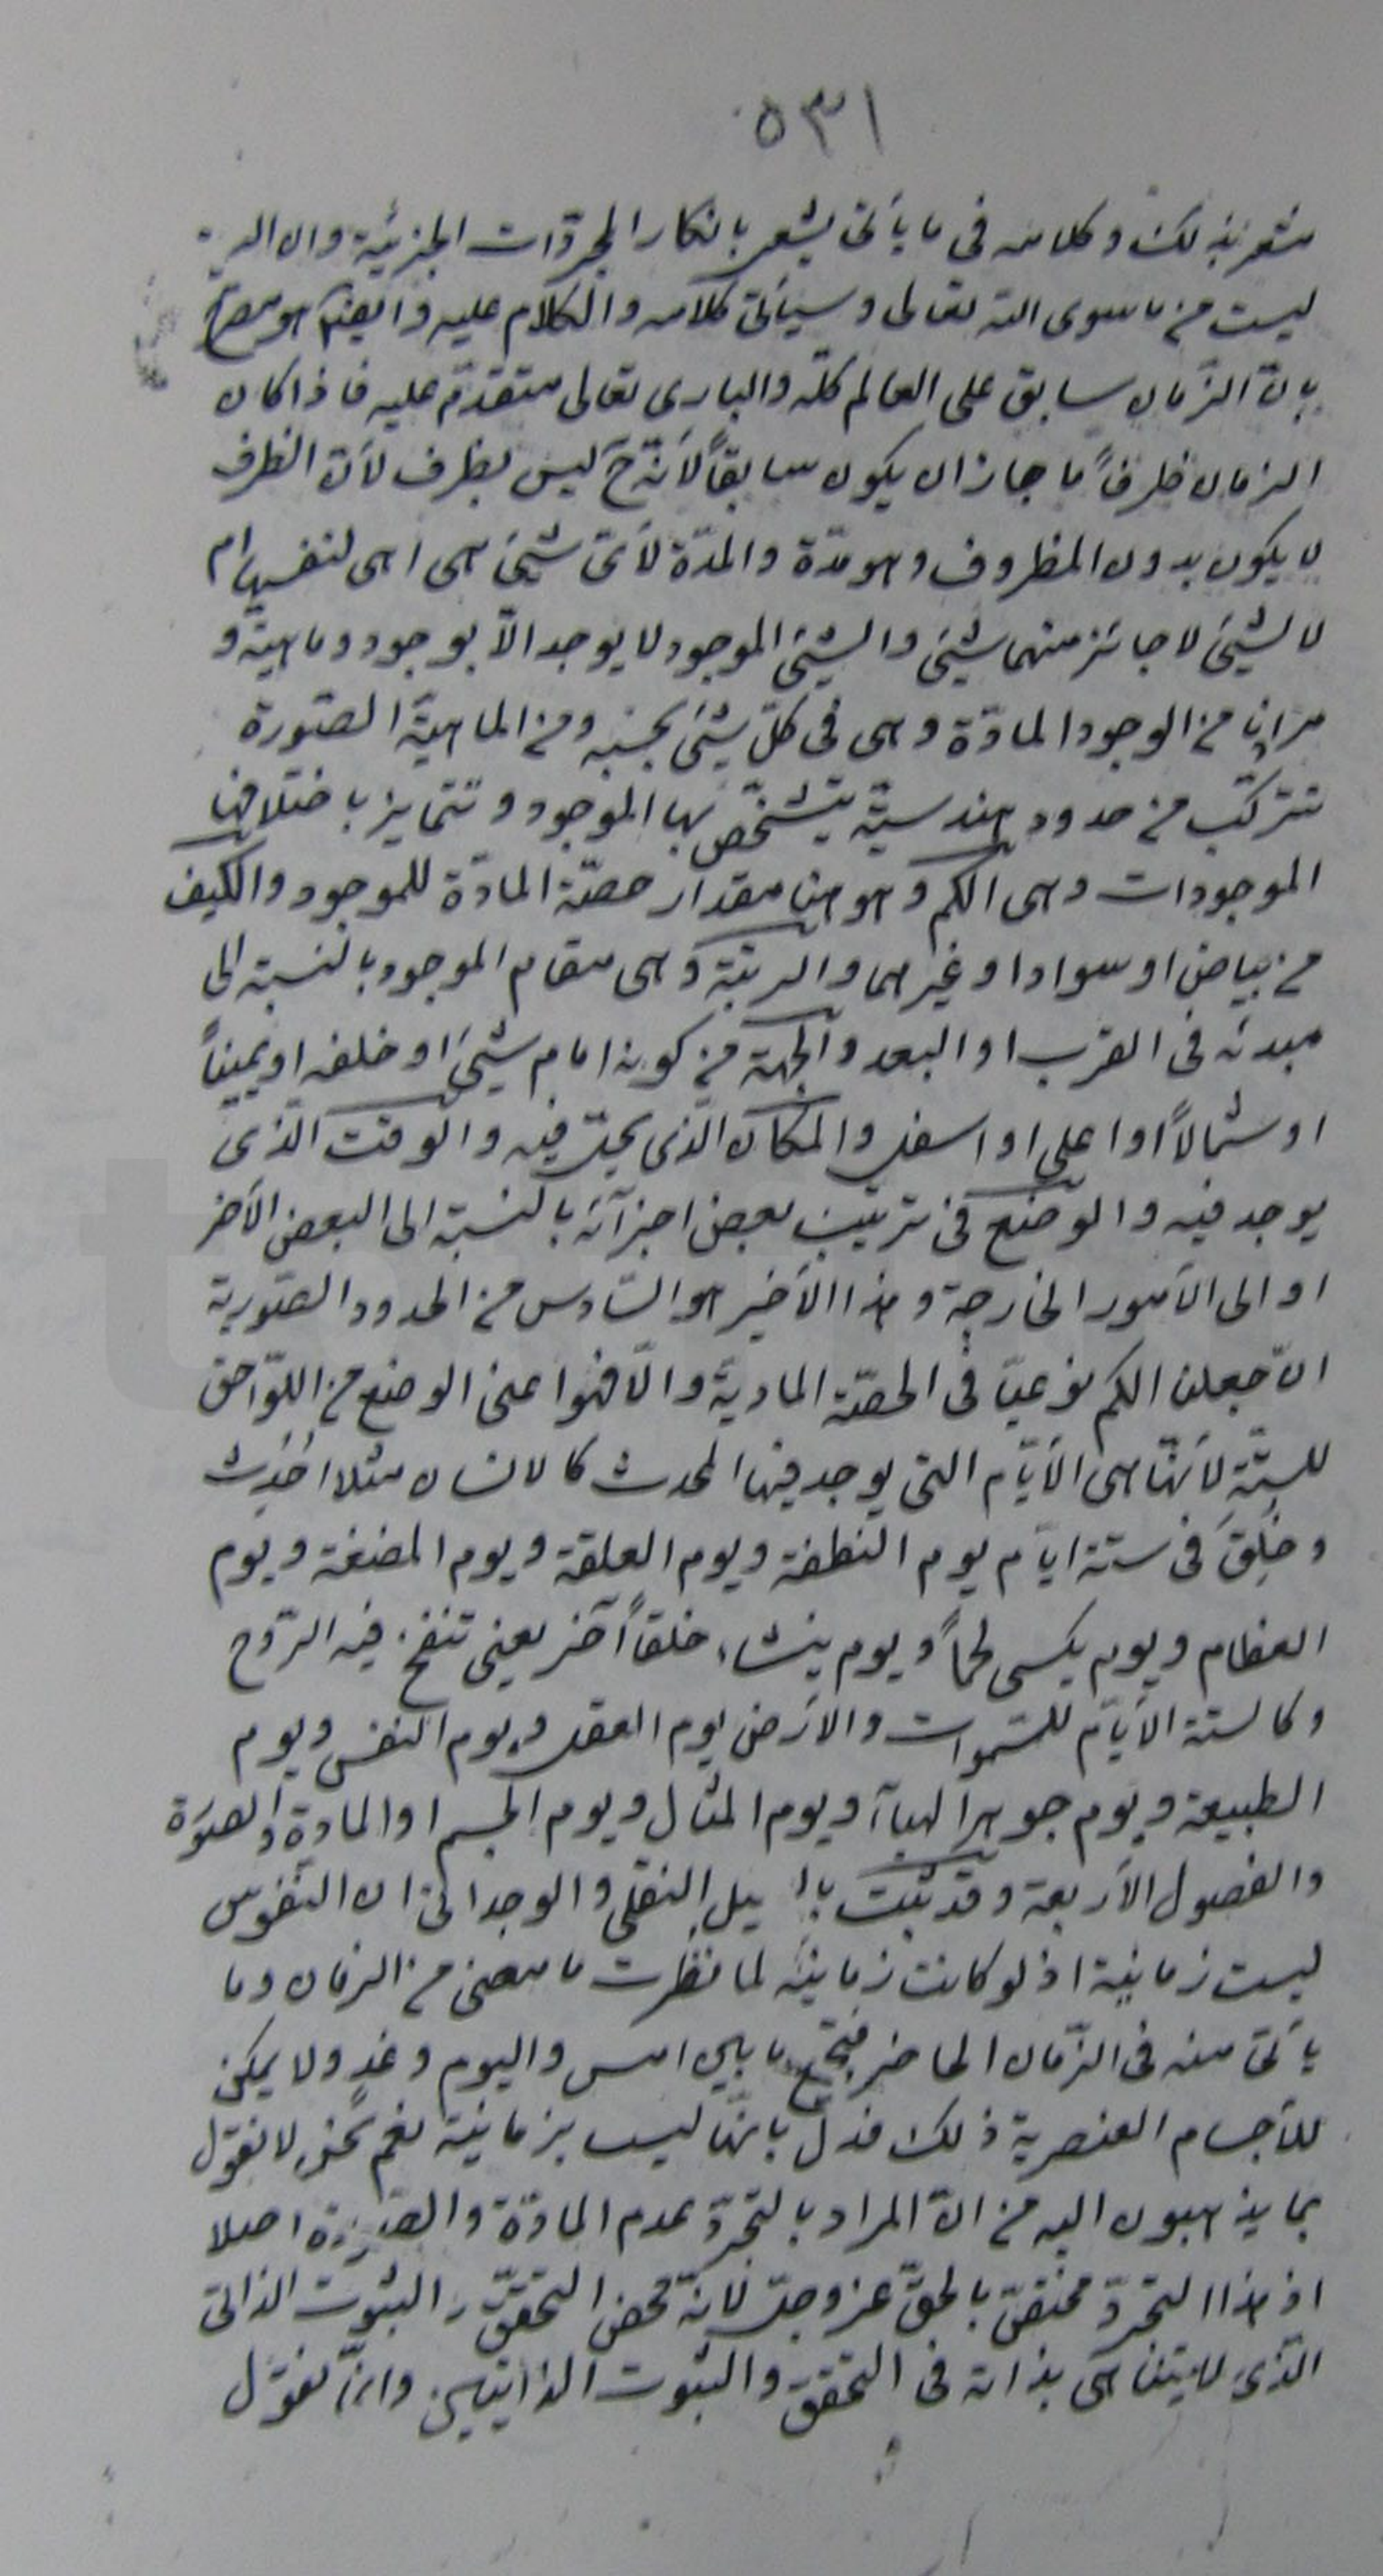 ٥٣١
مشعر بذلك وكلامه فى ما يأتى يشعر بانكار المجرّدات الجزئيّة وان
ليست من ما سوى الله تعالى وسيأتى كلامه والكلام عليه وايضا هو مصرّح
بانّ الزّمان سابق على العالم كلّه والبارى تعالى متقدّم عليه فاذا كان
الزمان ظرفاً ما جاز ان يكون سابقاً لأنّه ح ليس بظرف لأنّ الظرف
لا يكون بدون المظروف وهو مدّة والمدّة لأىّ شيئ هى اهى لنفسها ام
لا لشيئ لا جائز منهما شيئ والشيئ الموجود لا يوجد الّا بوجود وماهيّة و
من الوجود المادّة وهى فى كلّ شيئ بحسبه ومن الماهيّة الصّورة
تتركّب من حدود هندسيّة يتشخّص بها الموجود وتتمايز باختلافها
الموجودات وهى الكم وهو هنا مقدار حصّة المادّة للموجود والكيف
من بياض او سواد او غيرهما والرتبة وهى مقام الموجود بالنسبة الى
مبدئه فى القرب او البعد والجهة من كونه امام شيئ او خلفه او يميناً
او شمالاً او اعلى او اسفل والمكان الّذى يحلّ فيه والوقت الّذى
يوجد فيه والوضع فى ترتيب بعض اجزآئه بالنسبة الى البعض الأخر
او الى الأمور الخارجة وهذا الأخير هو السّادس من الحدود الصّورية
ان جعلنا الكم نوعيّا فى الحصّة المادية والّا فهوا عنى الوضع من اللوّاحق
للستّة لأنّها هى الأيّام التى يوجد فيها المحدث كالانسان مثلا احُدِث
وخُلِقَ فى ستة ايّام يوم النطفة ويوم العلقة ويوم المضغة ويوم
العظام ويوم يكسى لحماً ويوم ينشاء خلقاً آخر يعنى تنفخ فيه الرّوح
وكالستة الأيّام للسّموات والأرض يوم العقل ويوم النفس ويوم
الطبيعة ويوم جوهر الهبآء ويوم المثال ويوم الجسم او المادة والصّورة
والفصول الأربعة وقد ثبت النقلى والوجدانى ان النّفوس
ليست زمانية اذ لو كانت زمانيّة لما نظرت ما مضى من الزمان وما
يأتى منه فى الزّمان الحاضر فتجمع ما بين امس واليوم وغدٍ ولا يمكن
للأجسام العنصرية ذلك فدلّ بانّها ليست بزمانية نعم نحن لا نقول
بما يذهبون اليه من انّ المراد بالتجرّد عدم المادّة والصّورة اصلا
اذ هذا التجرّد مختصّ بالحقّ عز وجلّ لأنّه محض التحقّق والثبوت الذاتى
الّذى لا يتناهى بذاته فى التحقق والثبوت الذاتيين وانّما نقول